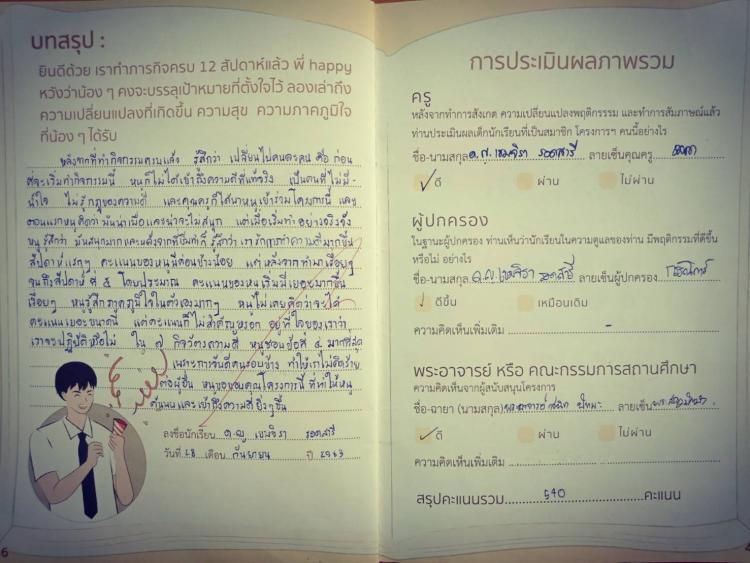 บทสรุป :
ยินดีด้วย เราทำภารกิจครบ 12 สัปดาห์แล้ว พี่ happy
หวังว่าน้อง ๆ คงจะบรรลุเป้าหมายที่ตั้งใจไว้ ลองเล่าถึง
ความเปลี่ยนแปลงที่เกิดขึ้น ความสุข ความภาคภูมิใจ
ที่น้อง ๆ ได้รับ
หลังจากที่ทำกิจกรรมครบแล้ว รู้สึกว่า เปลี่ยนไปคนละคน คือ ก่อน
ที่จะเริ่มทำกิจกรรมนี้ หนูก็ไม่ได้เข้าถึงความดีที่แท้จริง เป็นคนที่ไม่มี
น้ำใจ ไม่รู้กฎของความดี และคุณครูก็ได้พาหนูเข้าร่วมโครงการนี้ และ
ตอนแรกหนูคิดว่ามันน่าเบื่อและน่าจะไม่สนุก แต่เมื่อเริ่มทำอย่างจริงจัง
หนูรู้สึกว่า มันสนุกมากและหลังจากที่เริ่มทำก็รู้สึกว่า เรารักการทำความดีมากขึ้น
สัปดาห์แรกๆ คะแนนของหนูมีค่อนข้างน้อย แต่หลังจากทำมาเรื่อยๆ
จนถึงสัปดาห์ที่ 5 โดยประมาณ คะแนนของหนูเริ่มมีเยอะมากขึ้น
เรื่อยๆ หนูรู้สึกภาคภูมิใจในตัวเองมากๆ หนูไม่เคยคิดว่าจะได้
คะแนนเยอะขนาดนี้ แต่คะแนนก็ไม่สำคัญหรอก อยู่ที่ใจของเราว่า
เราจะปฏิบัติหรือไม่ ใน ๗ กิจวัตรความดี หนูชอบข้อที่ ๔ มากที่สุด
เพราะการจับดีคนรอบข้าง ทำให้เราไม่คิดร้าย
ต่อผู้อื่น หนูขอขอบคุณโครงการนี้ ที่ทำให้หนู
ค้นพบและเข้าถึงความดียิ่งๆขึ้น
ลงชื่อนักเรียน ด.ญ เขมจิรา รอดสารี
วันที่ 28 เดือน กันยายน ปี 2563
6
การประเมินผลภาพรวม
ครู
หลังจากทำการสังเกต ความเปลี่ยนแปลงพฤติกรรม และทำการสัมภาษณ์แล้ว
ท่านประเมินผลเด็กนักเรียนที่เป็นสมาชิก โครงการฯ คนนี้อย่างไร
ชื่อ-นามสกุล ด.ญ.เขมจิรา รอดสารี ลายเซ็นคุณครู
ดี ผ่าน ไม่ผ่าน
ผู้ปกครอง
ในฐานะผู้ปกครอง ท่านเห็นว่านักเรียนในความดูแลของท่าน มีพฤติกรรมที่ดีขึ้น
หรือไม่ อย่างไร
ชื่อ-นามสกุล ด.ญ.เขมจิรา รอดสารี ลายเซ็นผู้ปกครอง
ดีขึ้น เหมือนเดิม
ความคิดเห็นเพิ่มเติม -
พระอาจารย์ หรือ คณะกรรมการสถานศึกษา
ความคิดเห็นจากผู้สนับสนุนโครงการ
ชื่อ-ฉายา (นามสกุล) ลายเซ็น
ดี ผ่าน ไม่ผ่าน
ความคิดเห็นเพิ่มเติม
สรุปคะแนนรวม 540 คะแนน